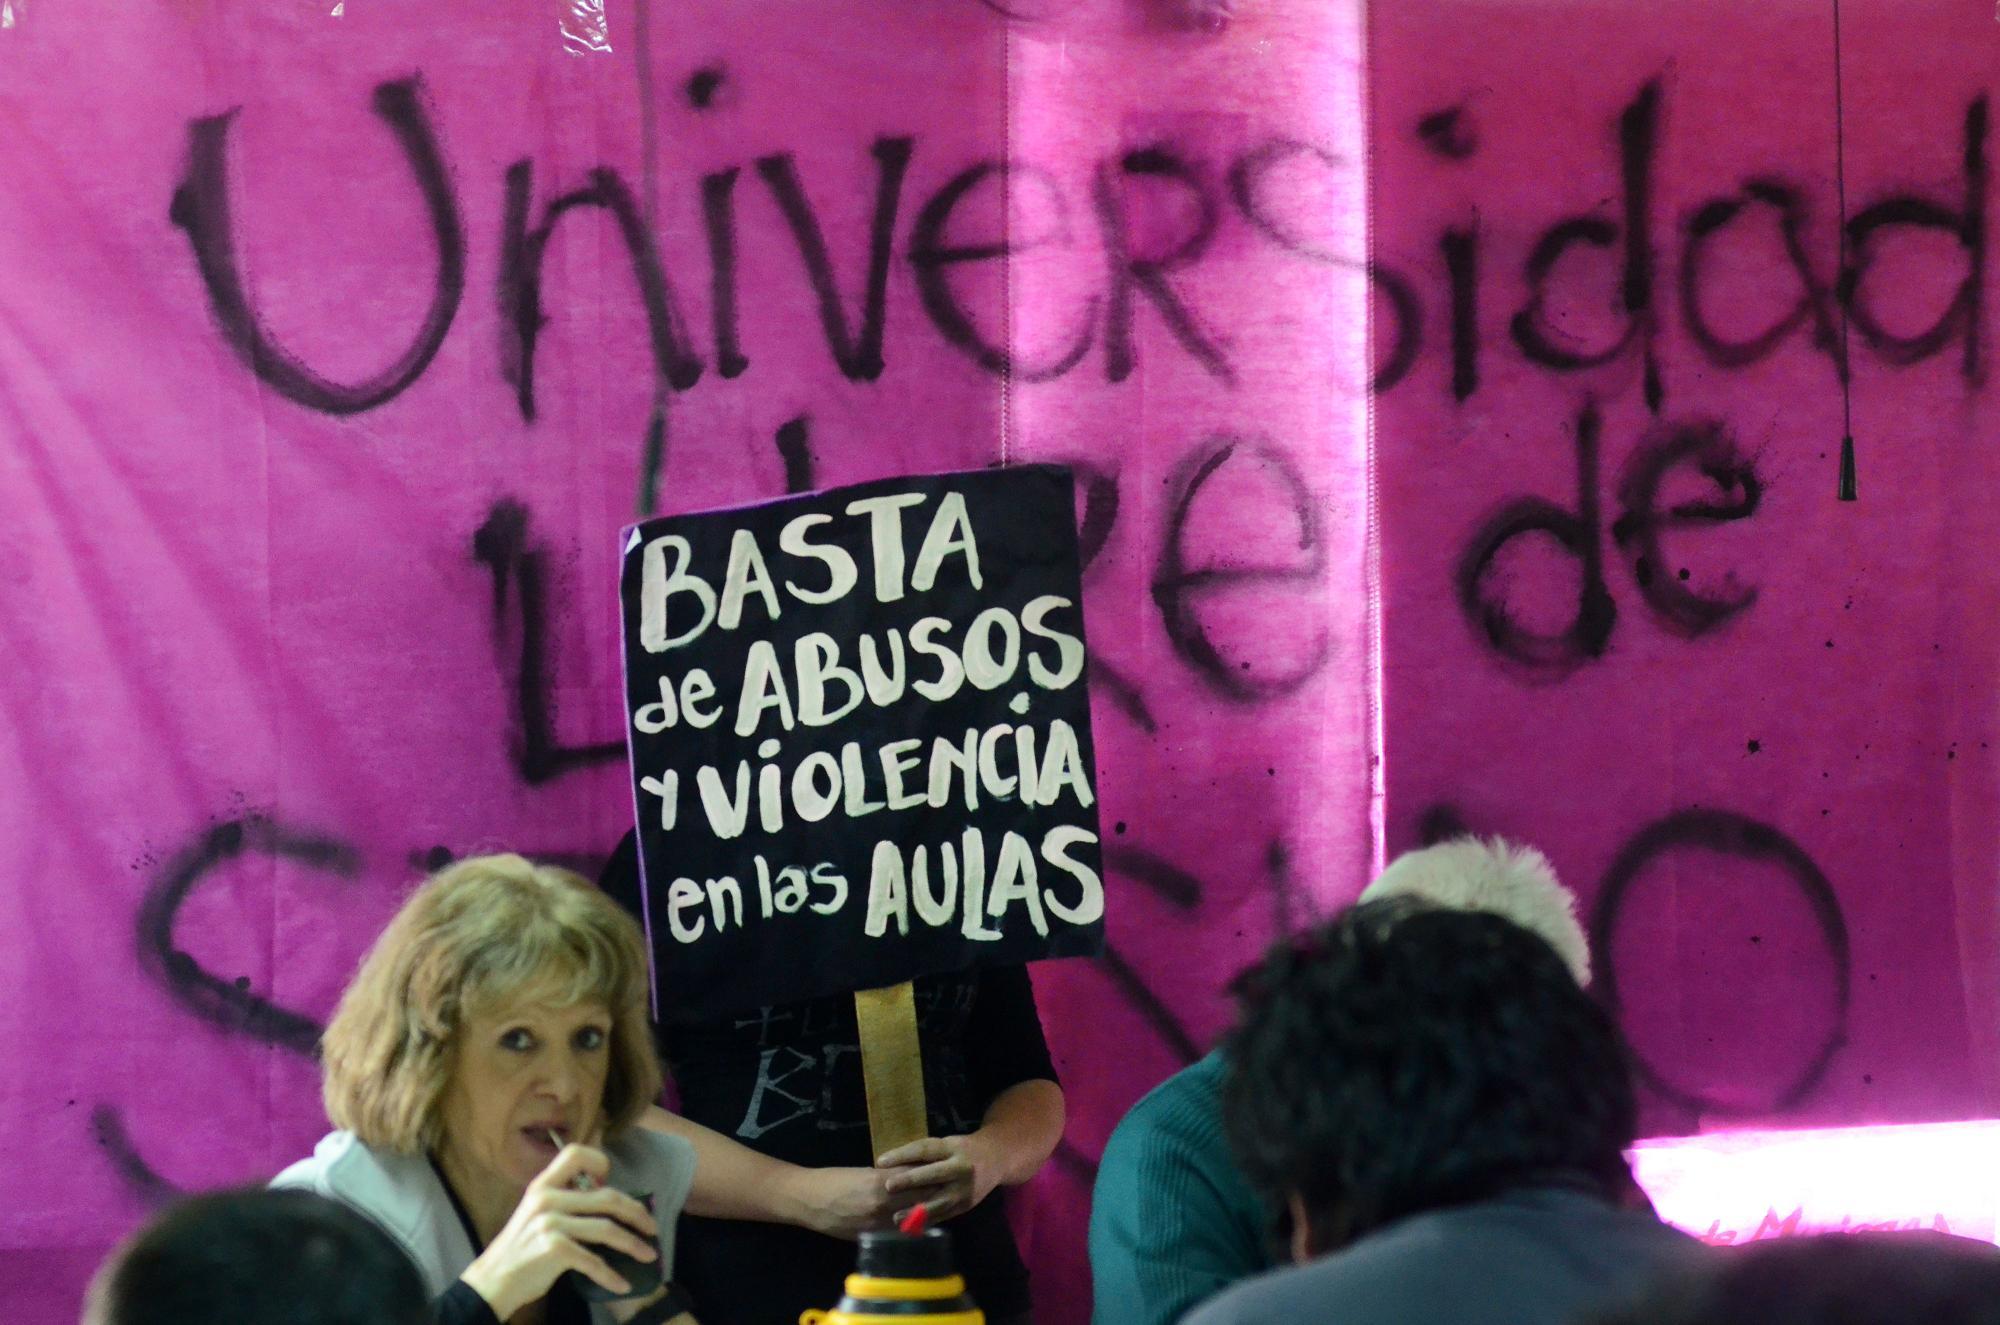 Universidad
Libre de
BASTA
de ABUSOS
y VIOLENCIA
en las AULAS